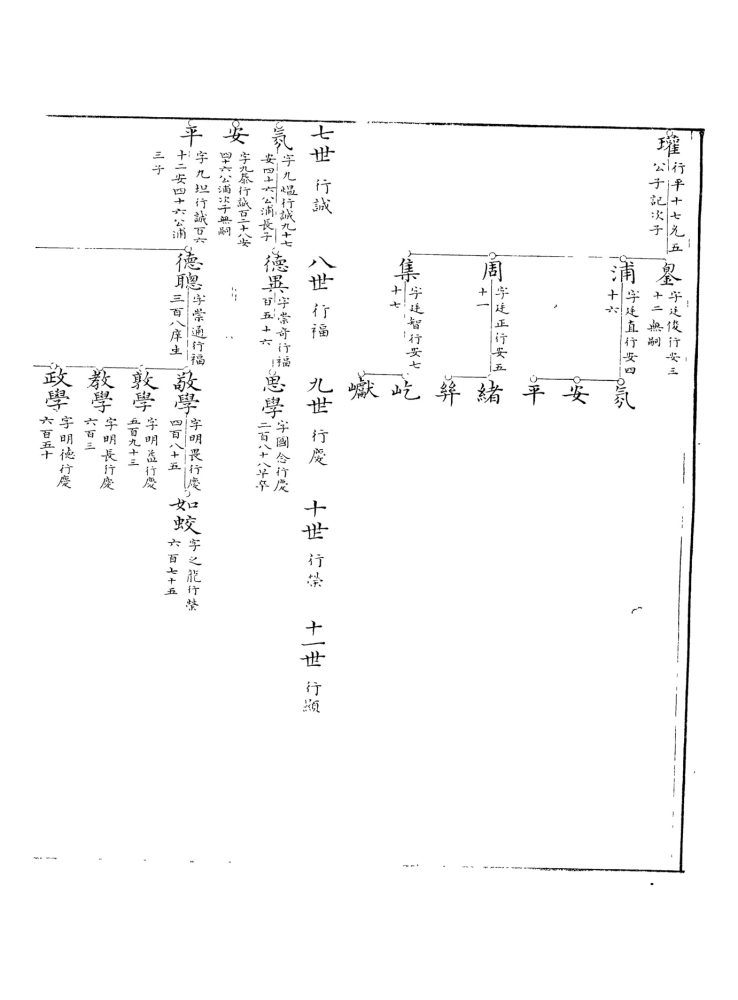 瓘
行平十七允五
公子記次子
鋆
字廷俊行安三
十二無嗣
浦
字廷直行安四
十六
氛
安
平
周
字廷正行安五
十一
緒
絳
集
字廷智行安七
十七
屹
巘
七世 行誠
八世 行福
九世 行慶
十世 行榮
十一世 行顯
氛
字九熅行誠九十七
安四十六公浦長子
德異
字崇奇行福
百五十六
思學
字國念行慶
二百八十八早卒
安
字九泰行誠百二十八安
四十六公浦次子無嗣
平
字九坦行誠百六
十二安四十六公浦
三子
德聰
字崇通行福
三百八庠生
敬學
字明畏行慶
四百八十五
如蛟
字之龍行榮
六百七十五
敦學
字明益行慶
五百九十三
教學
字明長行慶
六百三
政學
字明德行慶
六百五十